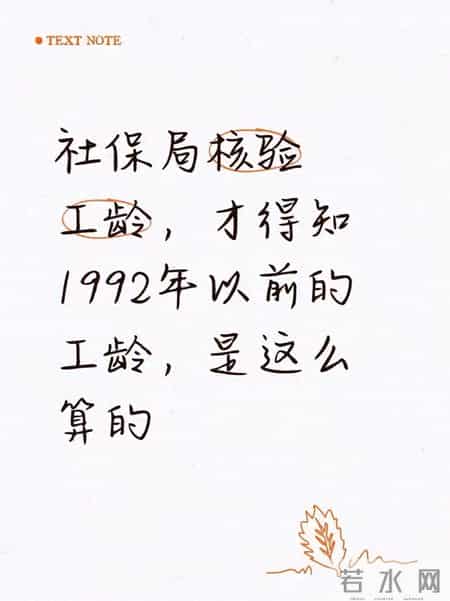 TEXT NOTE
社保局核验
工龄，才得知
1992年以前的
工龄，是这么
算的
若水网
RUOSHUI.COM